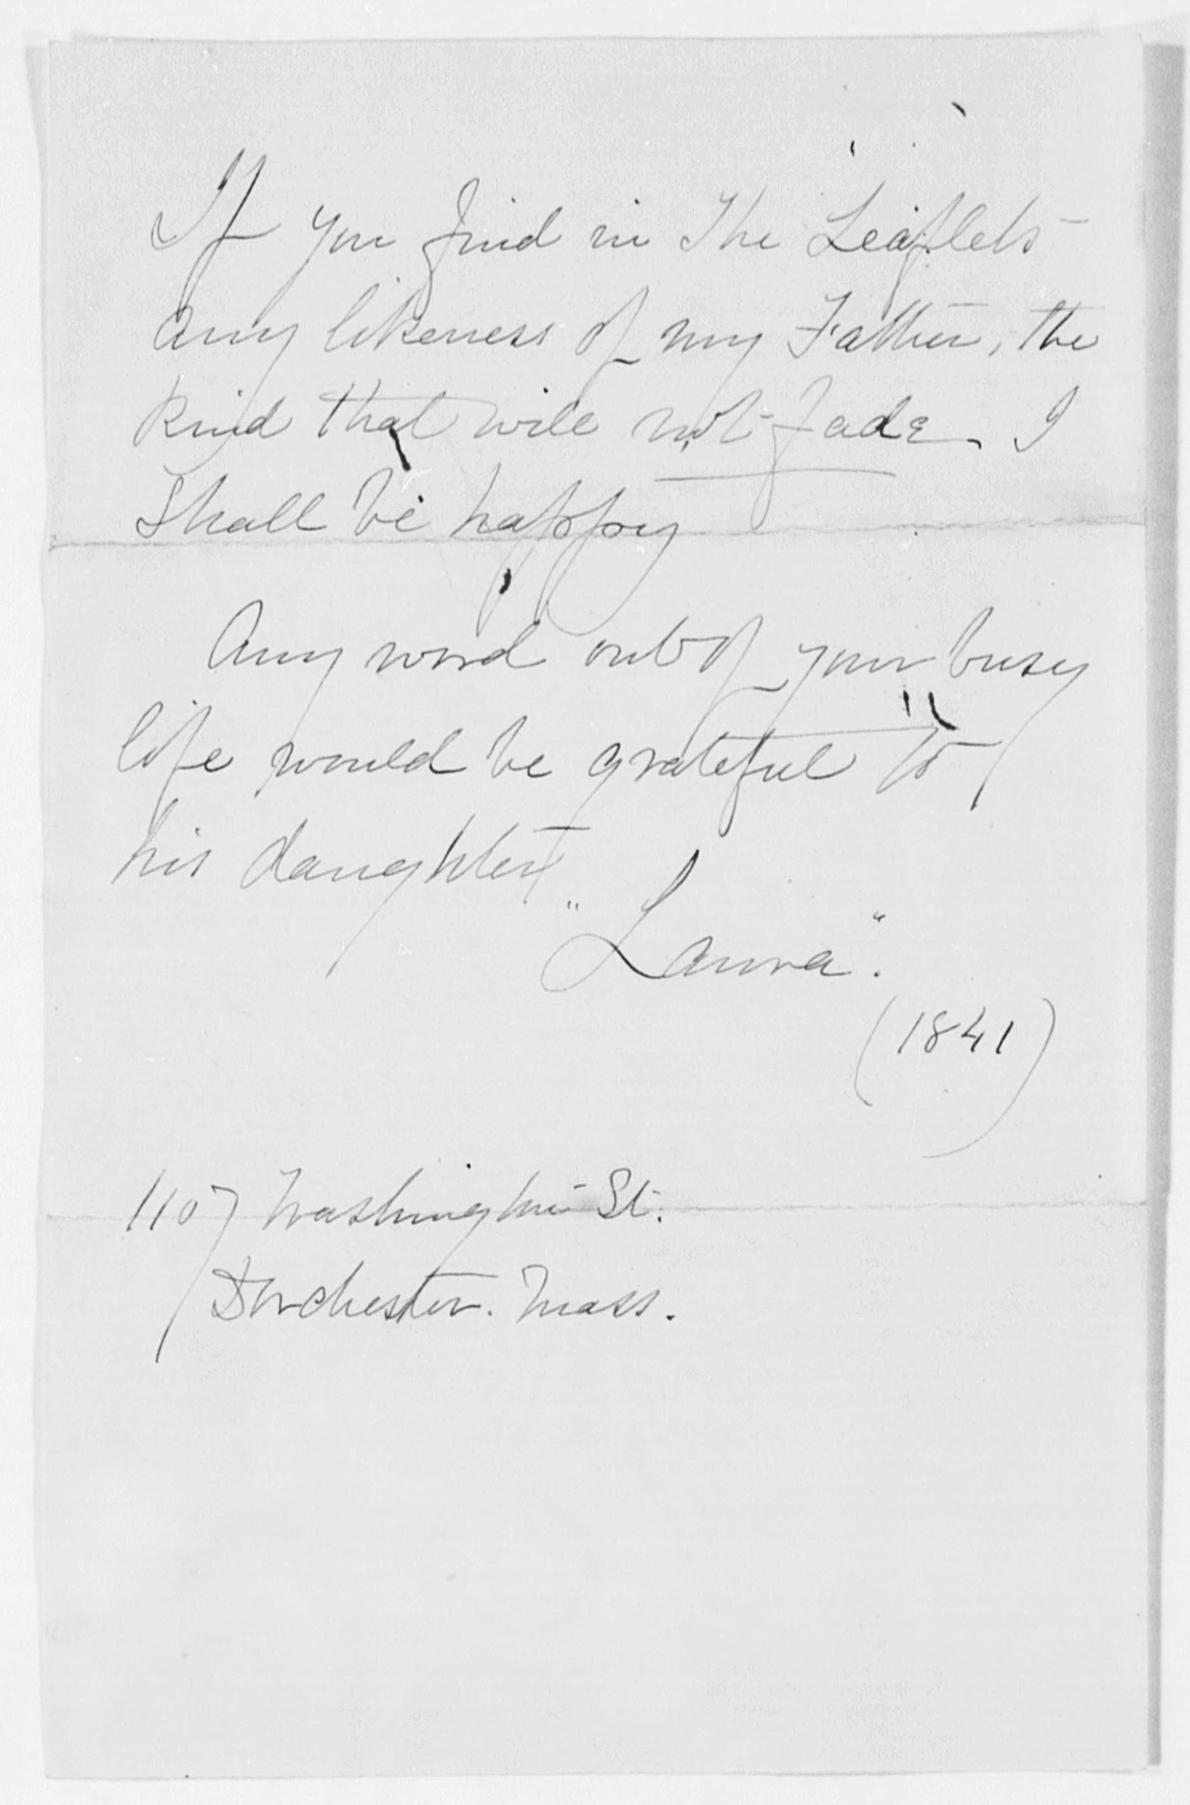 If you find in The Leaflets
any likeness of my Father, the
kind that will not fade. I
shall be happy
Any word out of your busy
life would be grateful to
his daughter
"Laura".
(1841)
1107 Washington St.
Dorchester. Mass.